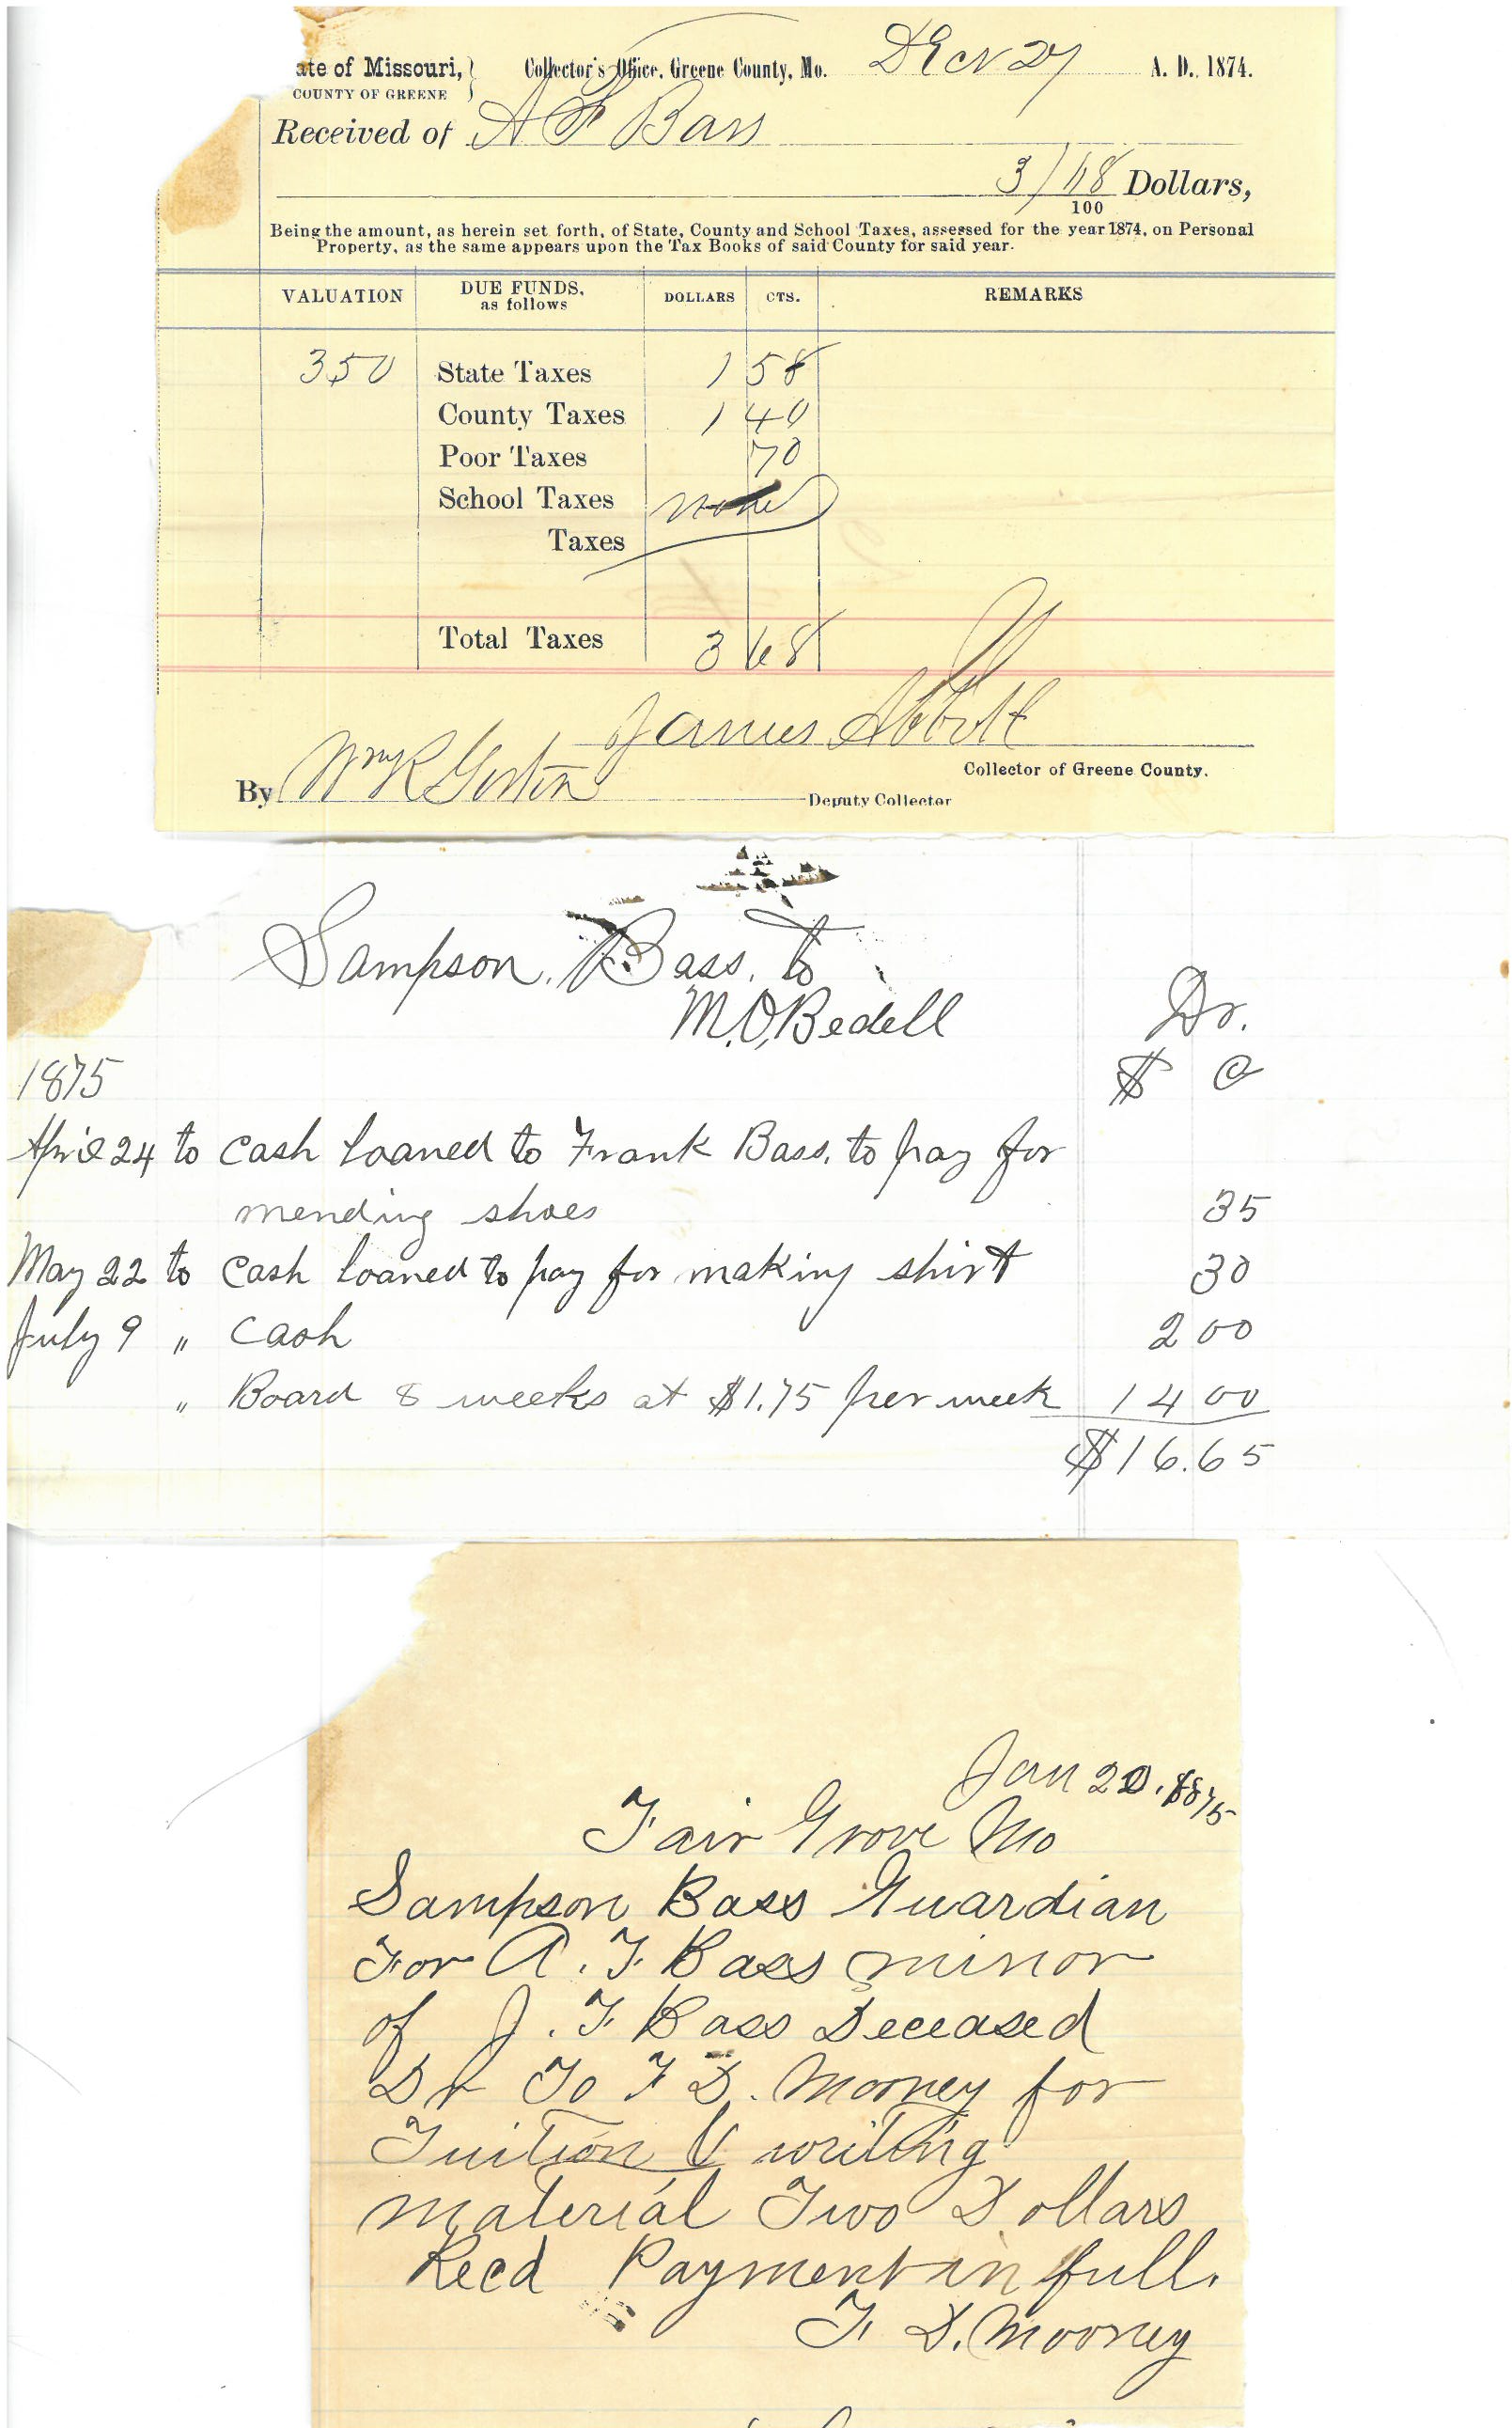 ate of Missouri, } Collector's Office, Greene County, Mo. Dec 27 A. D. 1874.
COUNTY OF GREENE
Received of A F Bass
3/68 Dollars,
100
Being the amount, as herein set forth, of State, County and School Taxes, assessed for the year 1874, on Personal
Property, as the same appears upon the Tax Books of said County for said year.
VALUATION DUE FUNDS, as follows DOLLARS CTS. REMARKS
350 State Taxes 1 58
County Taxes 1 40
Poor Taxes 70
School Taxes none
Taxes
Total Taxes 3 68
James Abbott
Collector of Greene County.
By Wm R Gorton Deputy Collector
Sampson. Bass. to
M.O. Bedell Dr.
1875 $ C
April 24 to cash loaned to Frank Bass. to pay for
mending shoes 35
May 22 to cash loaned to pay for making shirt 30
July 9 " Cash 2 00
" Board 8 weeks at $1.75 per week 14 00
$16.65
Jan 20. 1875
Fair Grove Mo
Sampson Bass Guardian
For A. F. Bass minor
of J. F. Bass Deceased
Dr To F D. Mooney for
Tuition & writing
material Two Dollars
Recd Payment in full.
F. D. Mooney